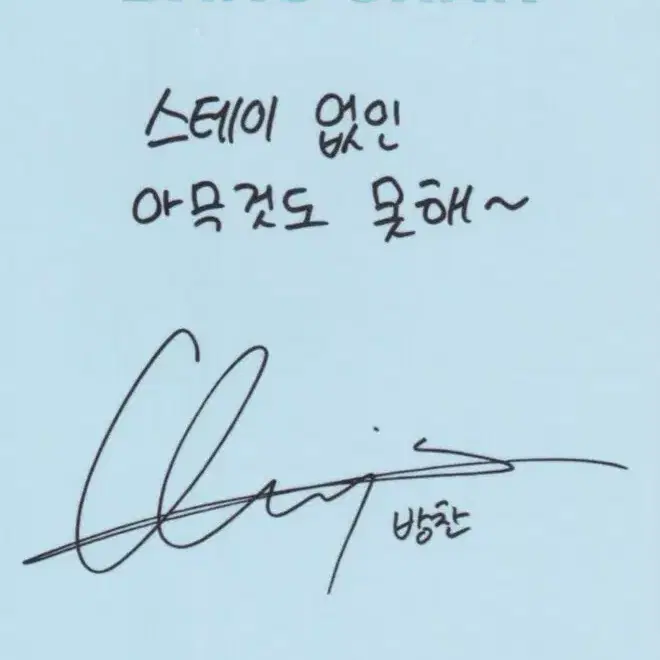 BANG CHAN
스테이 없인
아무것도 못해~
방찬